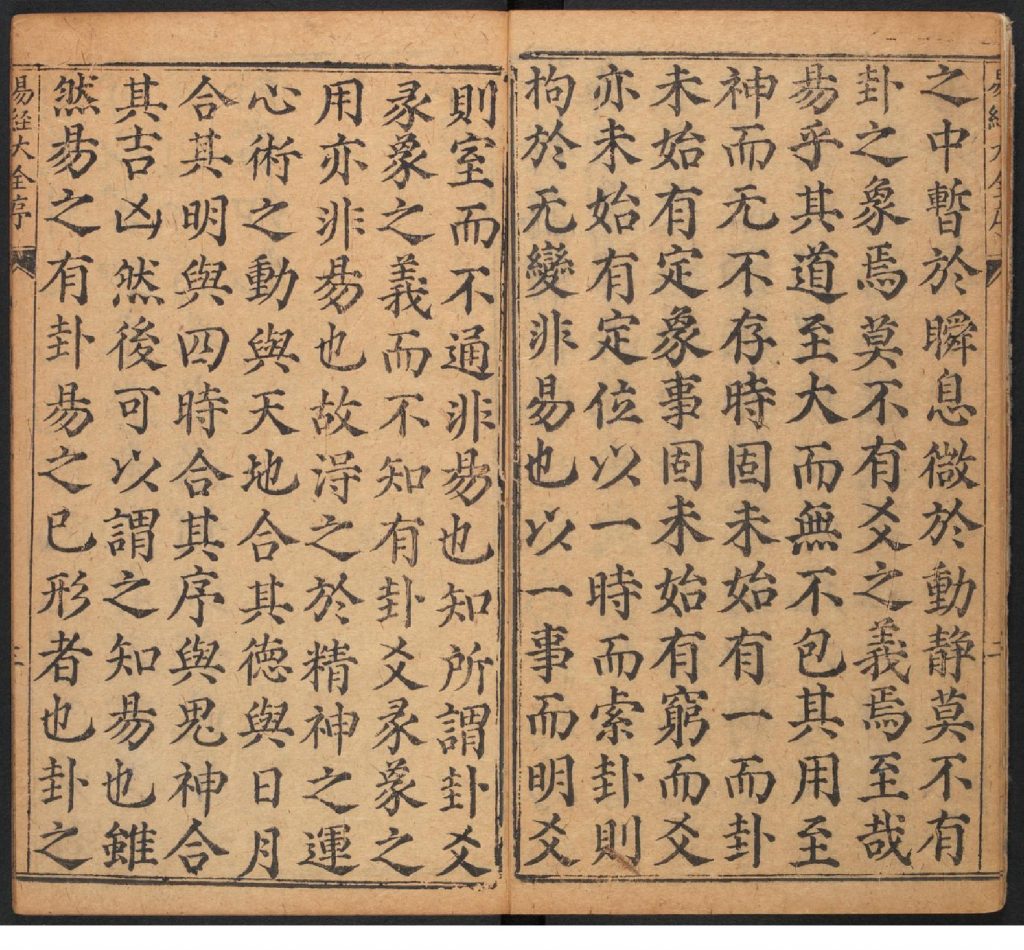 易經大全序
二
之中暫於瞬息微於動静莫不有
卦之象焉莫不有爻之義焉至哉
易乎其道至大而無不包其用至
神而无不存時固未始有一而卦
未始有定象事固未始有窮而爻
亦未始有定位以一時而索卦則
拘於无變非易也以一事而明爻
則窒而不通非易也知所謂卦爻
彖象之義而不知有卦爻彖象之
用亦非易也故淂之於精神之運
心術之動與天地合其徳與日月
合其明與四時合其序與鬼神合
其吉凶然後可以謂之知易也雖
然易之有卦易之已形者也卦之
易経大全序
二